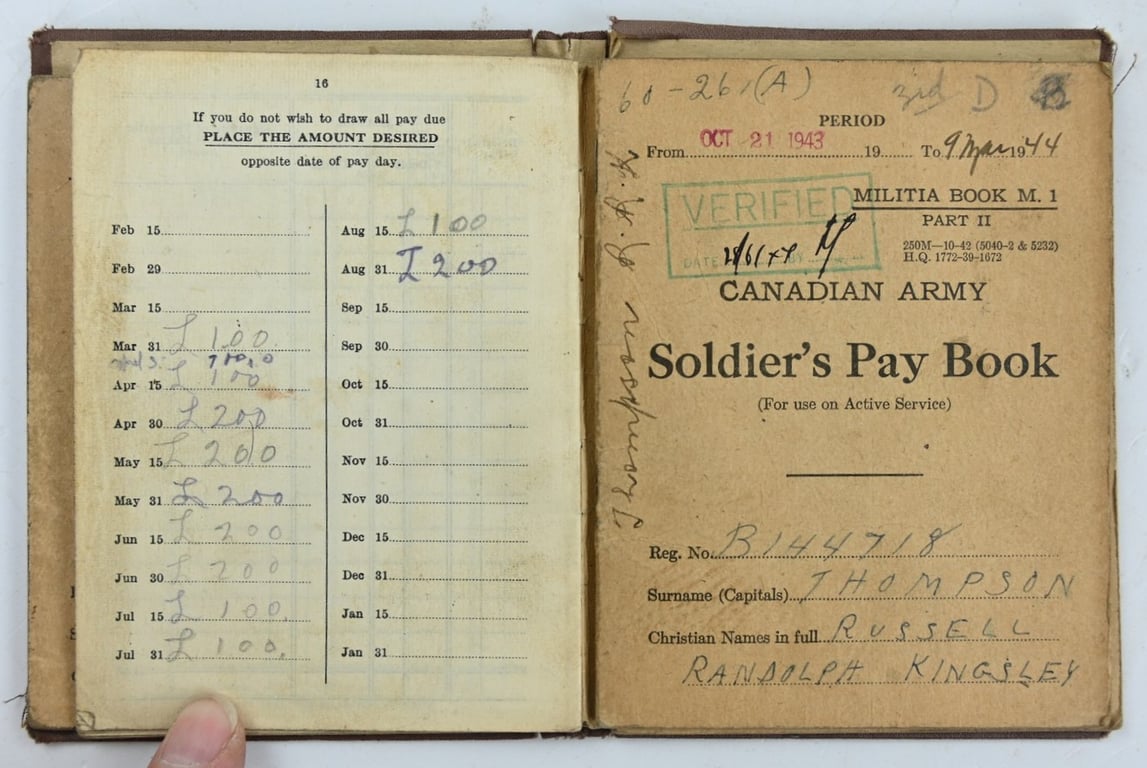 16
If you do not wish to draw all pay due
PLACE THE AMOUNT DESIRED
opposite date of pay day.
Feb 15
Feb 29
Mar 15
Mar 31 £ 100
Apr 15 £ 100
Apr 30 £ 200
May 15 £ 200
May 31 £ 200
Jun 15 £ 200
Jun 30 £ 200
Jul 15 £ 100.
Jul 31 £ 100.
Aug 15 £ 100
Aug 31 £ 200
Sep 15
Sep 30
Oct 15
Oct 31
Nov 15
Nov 30
Dec 15
Dec 31
Jan 15
Jan 31
60-261(A) 3rd D
PERIOD
From OCT 21 1943 19 To 9 Mar 1944
VERIFIED
DATE
MILITIA BOOK M. 1
PART II
250M—10-42 (5040-2 & 5232)
H.Q. 1772-39-1672
CANADIAN ARMY
Soldier's Pay Book
(For use on Active Service)
Reg. No. B144718
Surname (Capitals) THOMPSON
Christian Names in full RUSSELL
RANDOLPH KINGSLEY
Thompson